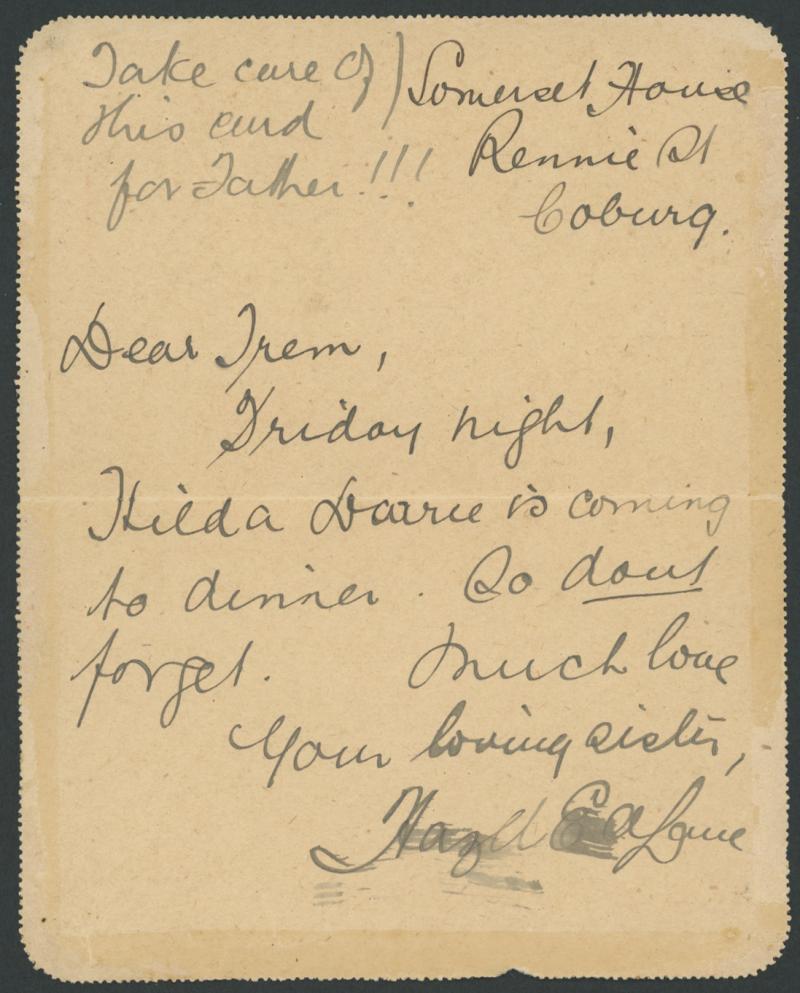 Take care of
this card
for Father!!!
Somerset House
Rennie St
Coburg.
Dear Trem,
Friday night,
Hilda is coming
to dinner. So dont
forget. Much love
Your loving sister,
Hazel E